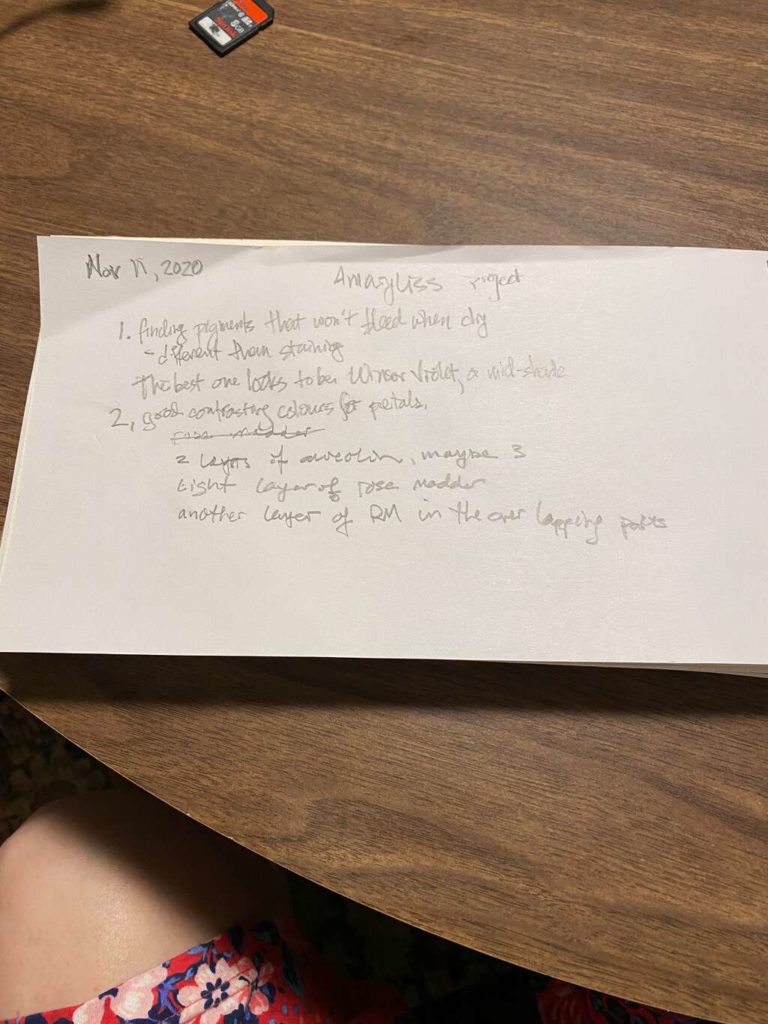 8GB
SanDisk
Nov 11, 2020
Amaryliss Project
1. finding pigments that won't bleed when dry
- different than staining
The best one looks to be Winsor Violet, a mid-shade
2, good contrasting colours for petals.
rose madder
2 layers of aureolin, maybe 3
Light layer of rose madder
another layer of RM in the over lapping parts